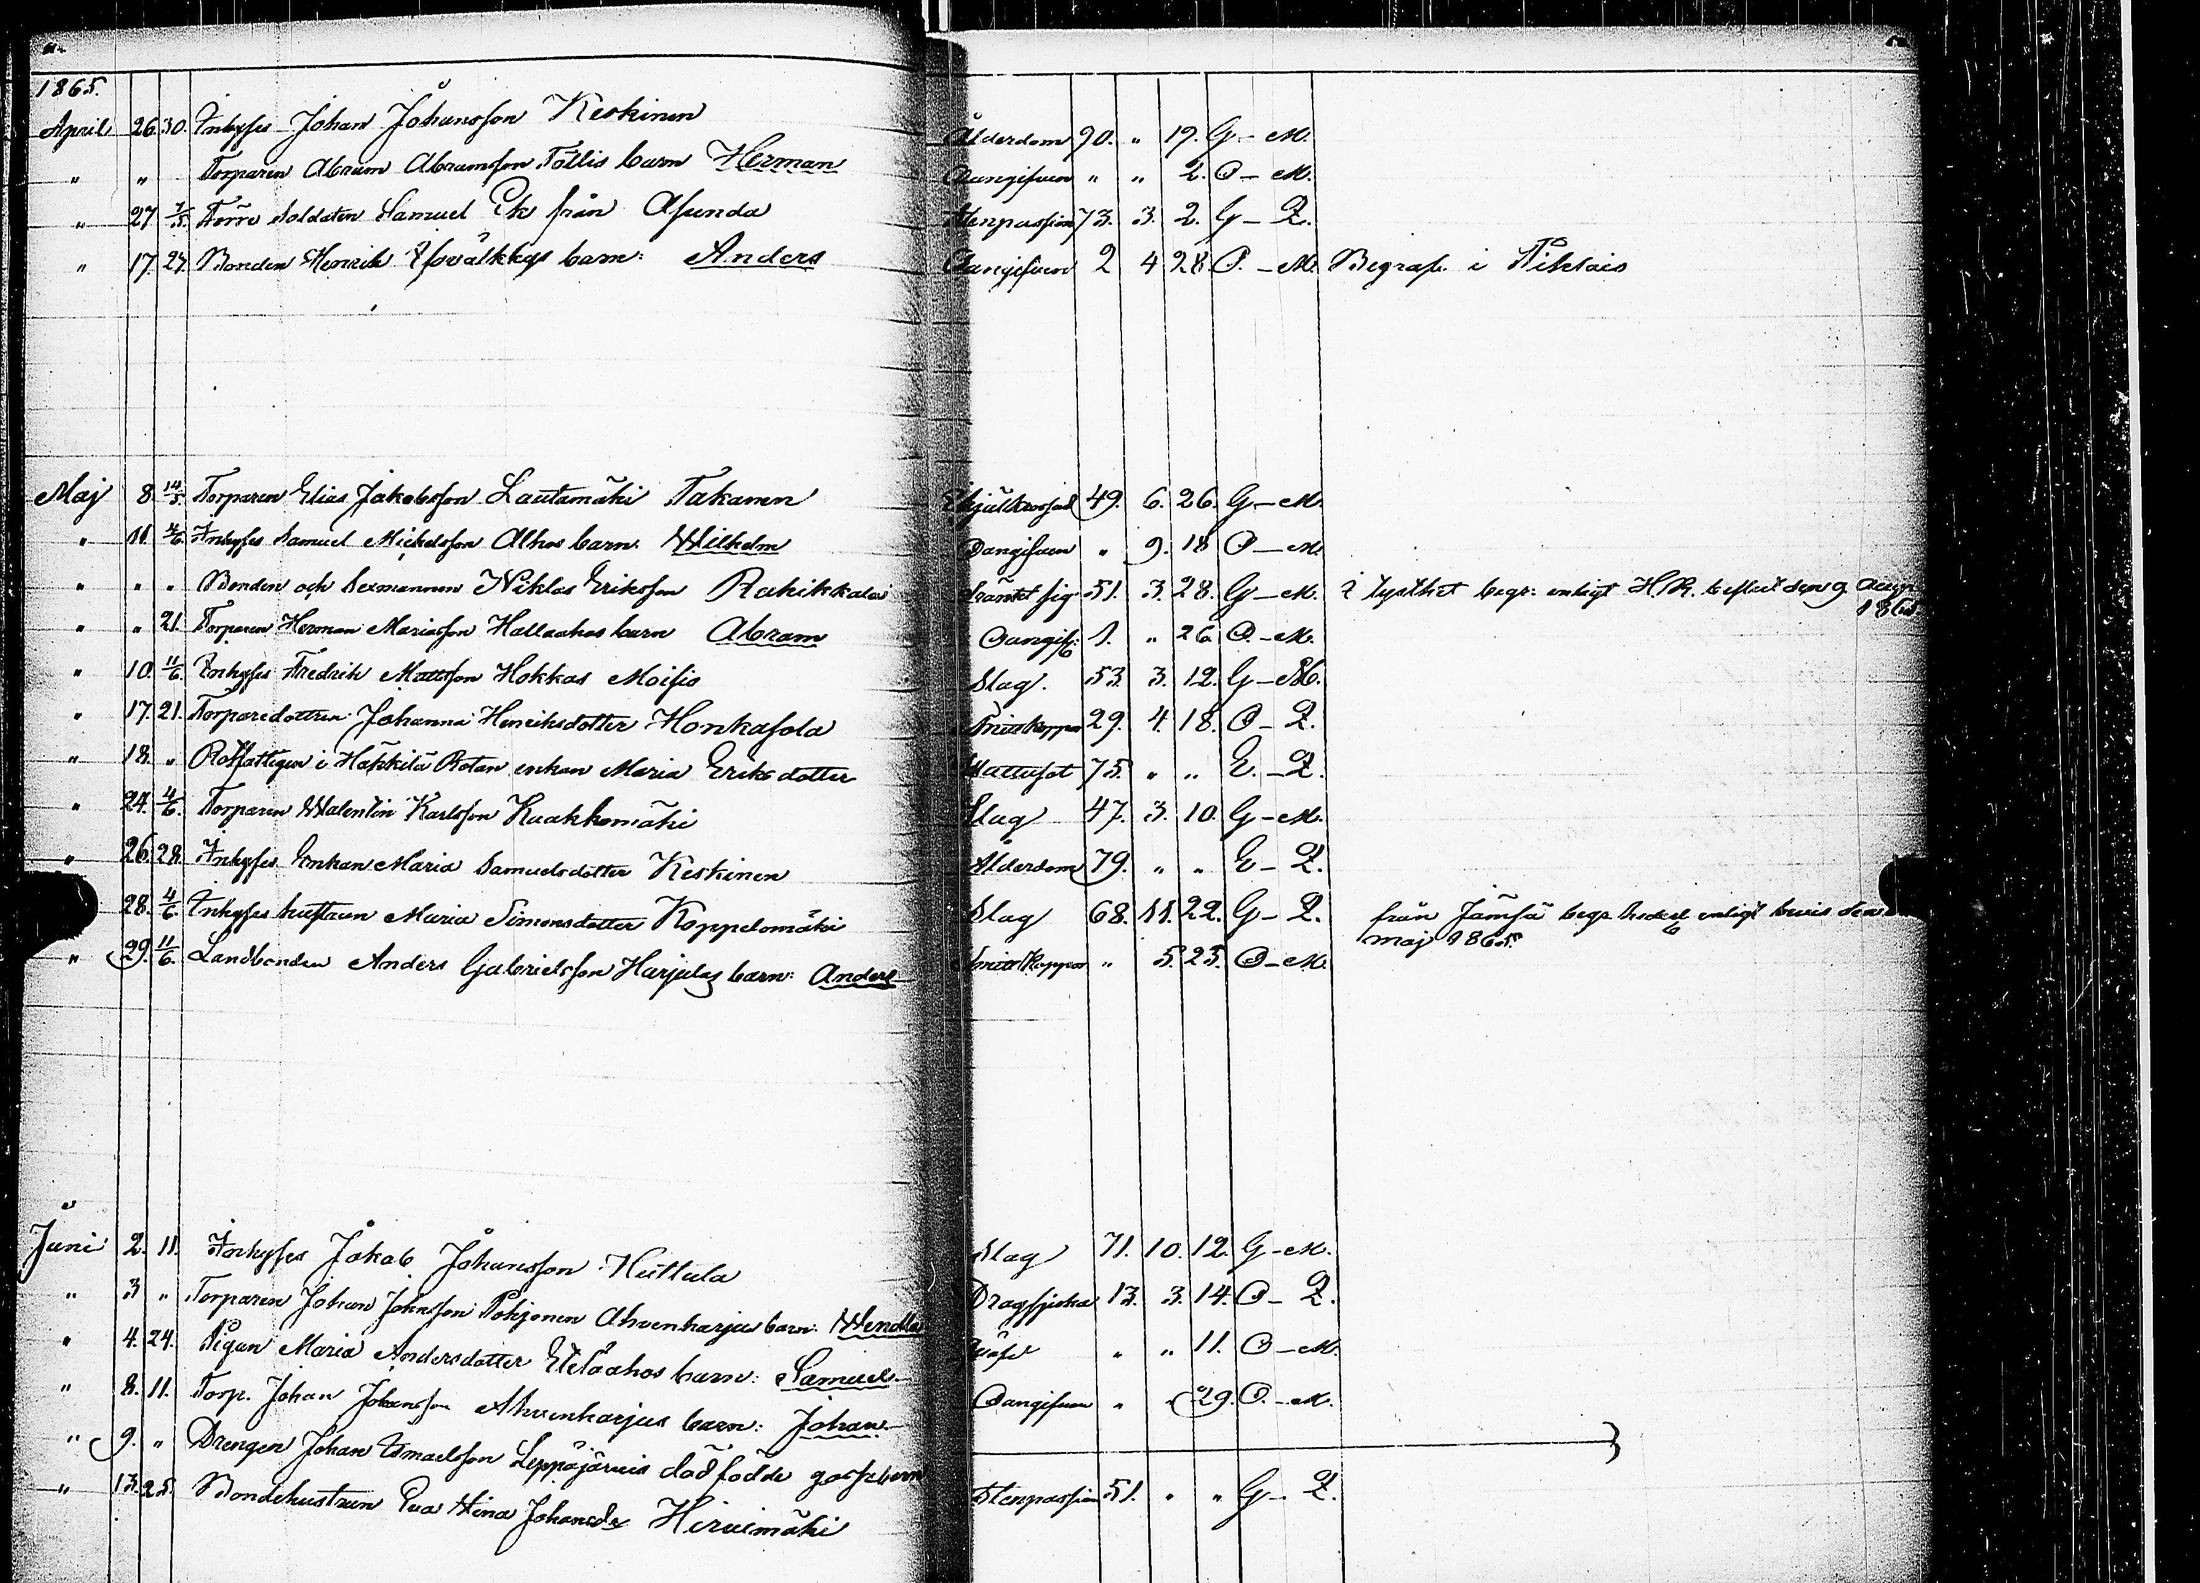 1865.
April 26. 30. Inhyses Johan Johansson Keskinen Ålderdom 90. " 19. G - M.
" " Torparen Abram Abramsson Töllis barn Herman Oangifven " " 2. O - M.
" 27 7/5 Förre Soldaten Samuel Ek från Asunda Stenpassion 73. 3. 2. G - Q.
" 17. 27. Bonden Henrik barn: Anders Oangifven 2 4 28. O. - M. Begrafv. i
Maj 8. 14/5. Torparen Elias Jakobsson Lautamäki Takanen Ihjälkrossad 49. 6. 26. G - M.
" 11. 4/6. Inhyses Samuel Mickelsson Alhos barn: Wilhelm Oangifven " 9. 18 O - M.
" " " Bonden och Sexmannen Niklas Eriksson Rahikkala Dränkt sig 51. 3. 28. G - M. i tysthet begr: enligt H.R. beslut den 9 Augu
1865.
" " 21. Torparen Herman Mariasson Hallaahos barn Abram Oangifv: 1. " 26. O. - M.
" 10. 11/6. Inhyses Fredrik Mattsson Hokkas Moisio Slag. 53. 3. 12. G - M.
" 17. 21. Torparedottren Johanna Henriksdotter Honkasola Smittkoppor 29. 4. 18. O - Q.
" 18. " Rotfattigen i Häkkilä Rotan enkan Maria Eriksdotter Vattusot 75. " " E. - Q.
" 24. 4/6. Torparen Walentin Karlsson Kuakkomäki Slag 47. 3. 10. G - M.
" 26. 28. Inhyses Enkan Maria Samuelsdotter Keskinen Ålderdom 79. " " E - Q.
28. 4/6. Inhyses hustrun Maria Simonsdotter Koppelomäki Slag 68. 11. 22. G - Q. från Jämsä begr. enligt bevis den
maj 1865.
" 29. 11/6. Landbonden Anders Gabrielsson Harjulas barn: Anders Smittkoppor " 5. 25. O - M.
Juni 2. 11. Inhyses Jakob Johansson Huttula Slag 71. 10. 12. G - M.
" 3 " Torparen Johan Johnsson Pohjonen Ahvenharjus barn: Wendla Dragsjuka 13. 3. 14. O - Q.
" 4. 24. Pigan Maria Andersdotter Eteläahos barn: Samuel " " 11. O - M.
" 8. 11. Torp. Johan Johansson Ahvenharjus barn: Johan Oangifven " " 29. O. - M.
" 9. " Drengen Johan Ismaelsson Leppäjärvis dödfödde gossebarn
" 13. 25. Bondehustrun Eva Stina Johansdr Hirvimäki Stenpassion 51. " " G - Q.